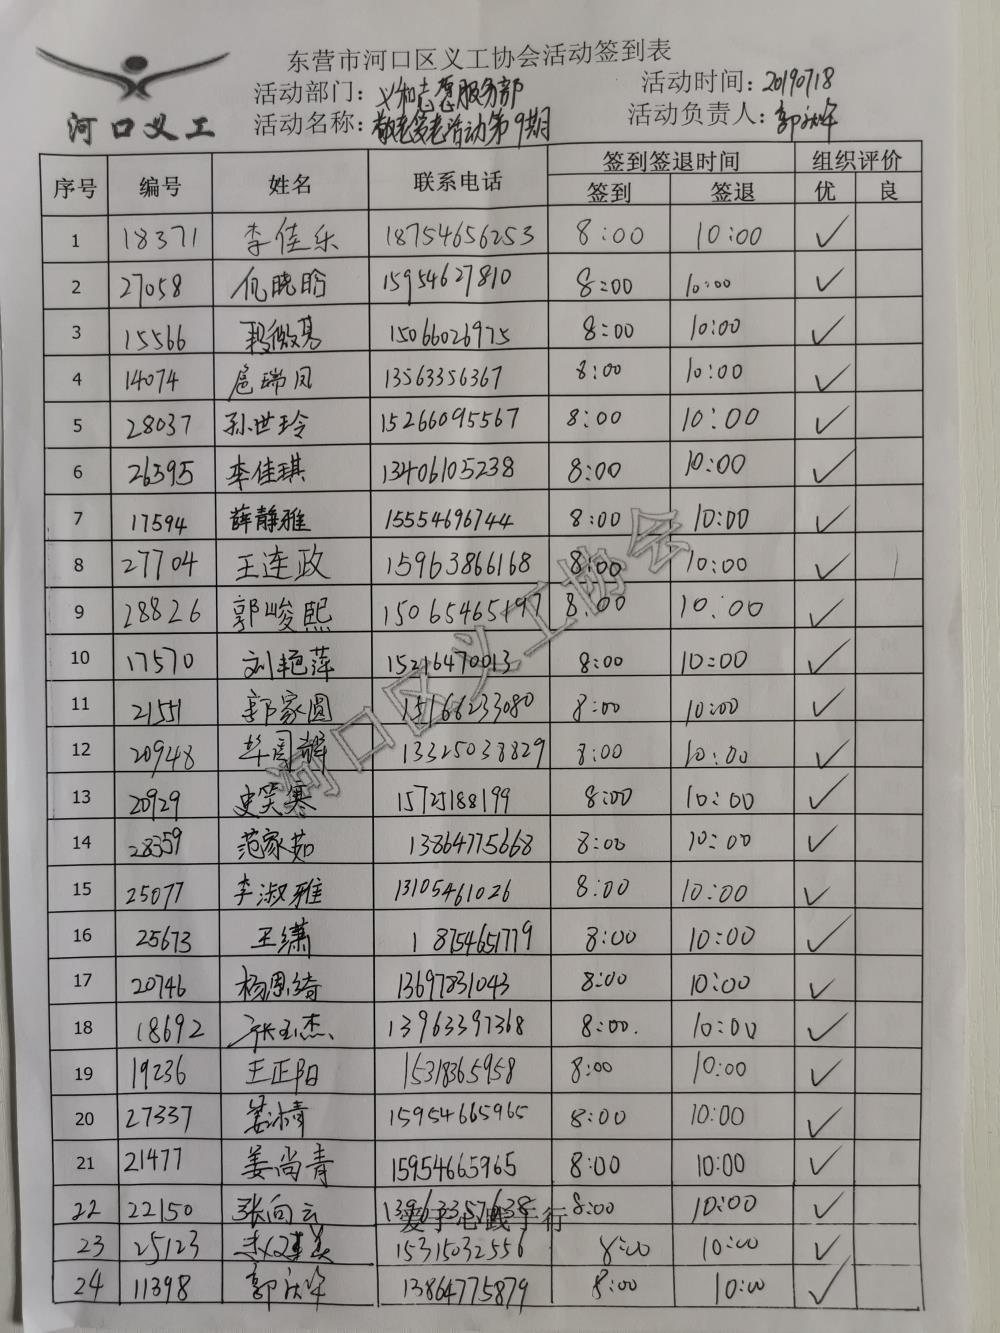 东营市河口区义工协会活动签到表
河口义工
活动部门: 义和志愿服务部 活动时间: 20190718
活动名称: 敬老爱老活动第9期 活动负责人: 郭
序号 编号 姓名 联系电话 签到签退时间 组织评价
签到 签退 优 良
1 18371 李佳乐 18754656253 8:00 10:00 ✓
2 27058 晓盼 15954627810 8:00 10:00 ✓
3 15566 段微 15066026975 8:00 10:00 ✓
4 14074 扈瑞凤 13563356367 8:00 10:00 ✓
5 28037 孙世玲 15266095567 8:00 10:00 ✓
6 26595 李佳琪 13406105238 8:00 10:00 ✓
7 17594 薛静雅 15554696744 8:00 10:00 ✓
8 27704 王连政 15963866168 8:00 10:00 ✓
9 28826 郭峻熙 15065465197 8:00 10:00 ✓
10 17570 刘艳萍 15216470013 8:00 10:00 ✓
11 21551 郭家圆 15166233080 8:00 10:00 ✓
12 20948 13325038829 8:00 10:00 ✓
13 20929 史笑寒 15725188199 8:00 10:00 ✓
14 28359 范家茹 13864775668 8:00 10:00 ✓
15 25077 李淑雅 13105461026 8:00 10:00 ✓
16 25673 王潇 18754651779 8:00 10:00 ✓
17 20746 杨恩绮 13697831043 8:00 10:00 ✓
18 18692 张玉杰 13963397368 8:00 10:00 ✓
19 19236 王正阳 15318365958 8:00 10:00 ✓
20 27337 姜冰倩 15954665965 8:00 10:00 ✓
21 21477 姜尚青 15954665965 8:00 10:00 ✓
22 22150 张向云 13963357638 8:00 10:00 ✓
爱于心践于行
23 25123 15315032556 8:00 10:00 ✓
24 11398 郭 13864775879 8:00 10:00 ✓
河口区义工协会